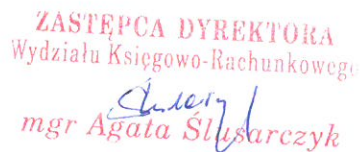 ZASTĘPCA DYREKTORA
Wydziału Księgowo-Rachunkowego
mgr Agata Ślusarczyk